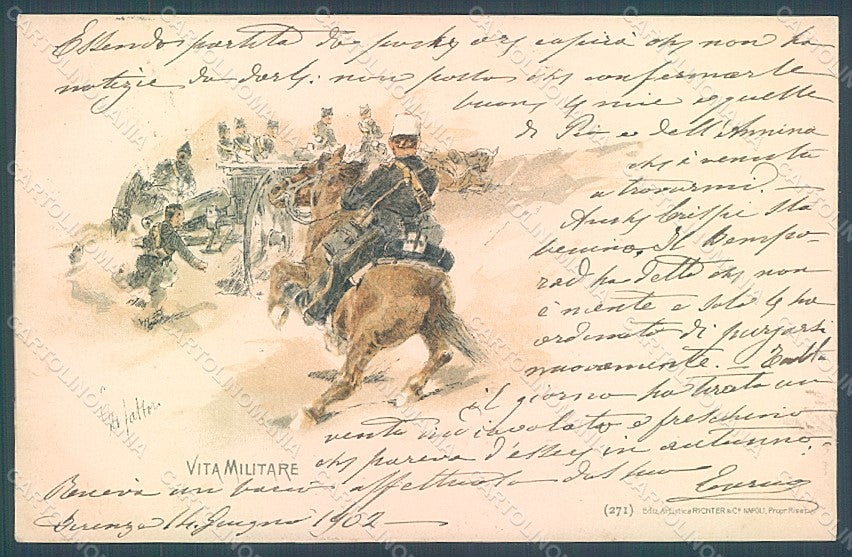 Essendo partita da poche ore capirà che non ho
notizie da darle: non posso che confermarle
buone le mie e quelle
di Pia e dell'Annina
che è venuta
a trovarmi. —
Anche Crispi sta
benino. Il Rempo-
rad ha detto che non
è niente e solo le ha
ordinato di purgarsi
nuovamente. — Tutto
il giorno ha tirato un
vento incoiolato e freschino
che pareva d'essere in autunno.
Riceva un bacio affettuoso dal suo
Firenze 14 Giugno 1902 —
G. Fattori
VITA MILITARE
(271) Ediz. Artistica RICHTER & Co. NAPOLI, Propr. Riser.
CARTOLINOMANIA